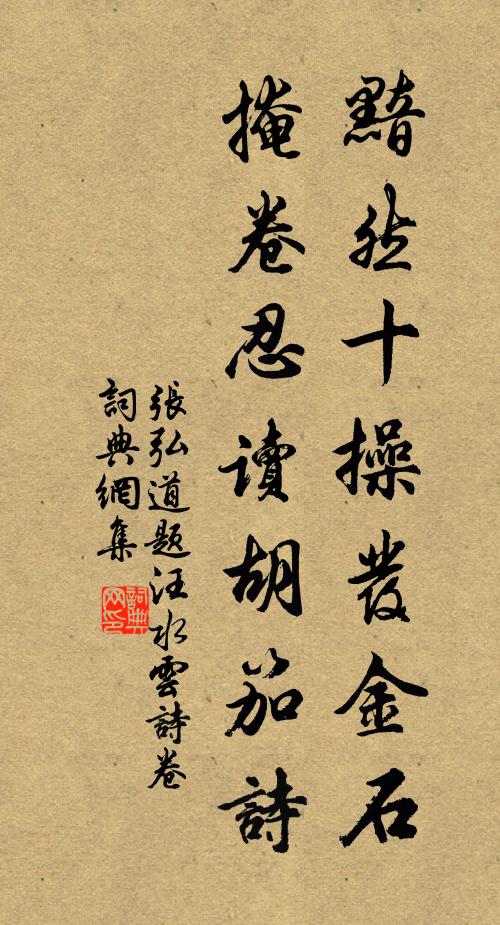 黯然十操發金石
掩卷忍讀胡笳詩
張弘道題汪水雲詩卷
詞典網集
詞典网印